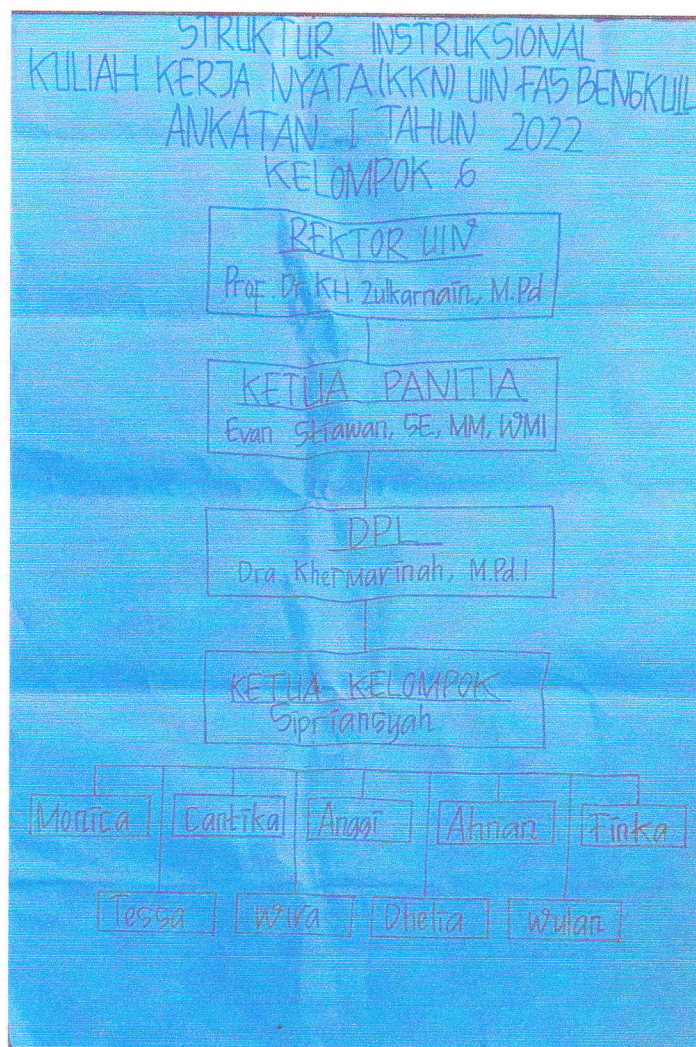 STRUKTUR INSTRUKSIONAL
KULIAH KERJA NYATA (KKN) UIN FAS BENGKULU
ANKATAN I TAHUN 2022
KELOMPOK 6
REKTOR UIN
Prof. Dr. KH. Zulkarnain, M.Pd
KETUA PANITIA
Evan Strawan, SE, MM, WMI
DPL
Dra. Khermarinah, M.Pd.I
KETUA KELOMPOK
Sipriansyah
Monica Cantika Anggi Ahnan Finka
Tessa Wira Dhelia Wulan